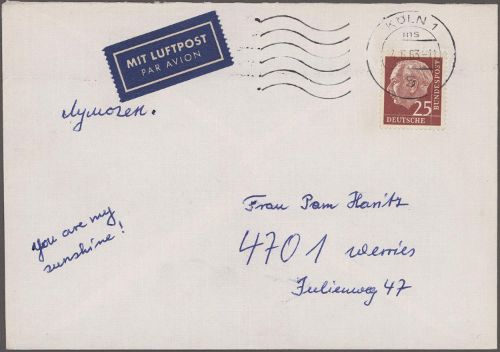 MIT LUFTPOST
PAR AVION
KÖLN 1
ms
6.63-11
25
DEUTSCHE
BUNDESPOST
Frau Pam Haritz
4701 Werries
Julienweg 47
you are my
sunshine!